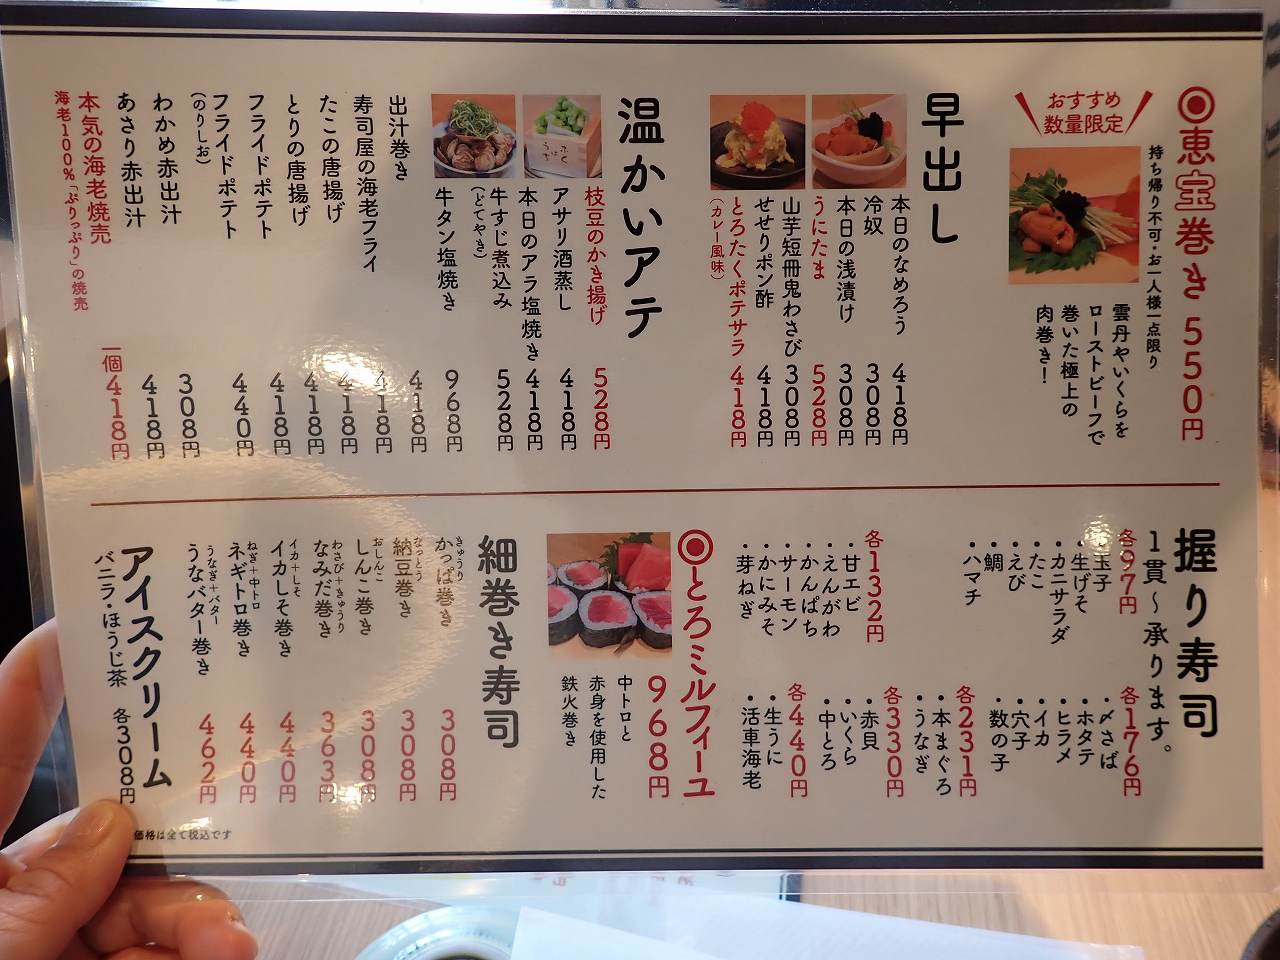 恵宝巻き 550円
おすすめ
数量限定
持ち帰り不可・お一人様一点限り
雲丹やいくらを
ローストビーフで
巻いた極上の
肉巻き！
早出し
本日のなめろう 418円
冷奴 308円
本日の浅漬け 308円
うにたま 528円
山芋短冊鬼わさび 308円
せせりポン酢 418円
とろたくポテサラ 418円
(カレー風味)
温かいアテ
枝豆のかき揚げ 528円
アサリ酒蒸し 418円
本日のアラ塩焼き 418円
牛すじ煮込み 528円
(どてやき)
牛タン塩焼き 968円
出汁巻き 418円
寿司屋の海老フライ 418円
たこの唐揚げ 418円
とりの唐揚げ 418円
フライドポテト 418円
フライドポテト 440円
(のりしお)
わかめ赤出汁 308円
あさり赤出汁 418円
本気の海老焼売 一個418円
海老100%「ぷりっぷり」の焼売
握り寿司
1貫〜承ります。
各97円
・玉子
・生げそ
・カニサラダ
・たこ
・えび
・鯛
・ハマチ
各176円
・〆さば
・ホタテ
・ヒラメ
・イカ
・穴子
・数の子
各132円
・甘エビ
・えんがわ
・かんぱち
・サーモン
・かにみそ
・芽ねぎ
各231円
・本まぐろ
・うなぎ
各330円
・赤貝
・いくら
・中とろ
各440円
・生うに
・活車海老
とろミルフィーユ
968円
中トロと
赤身を使用した
鉄火巻き
細巻き寿司
きゅうり
かっぱ巻き 308円
なっとう
納豆巻き 308円
おしんこ
しんこ巻き 308円
わさび+きゅうり
なみだ巻き 363円
イカ+しそ
イカしそ巻き 440円
ねぎ+中トロ
ネギトロ巻き 440円
うなぎ+バター
うなバター巻き 462円
アイスクリーム
バニラ・ほうじ茶 各308円
価格は全て税込です